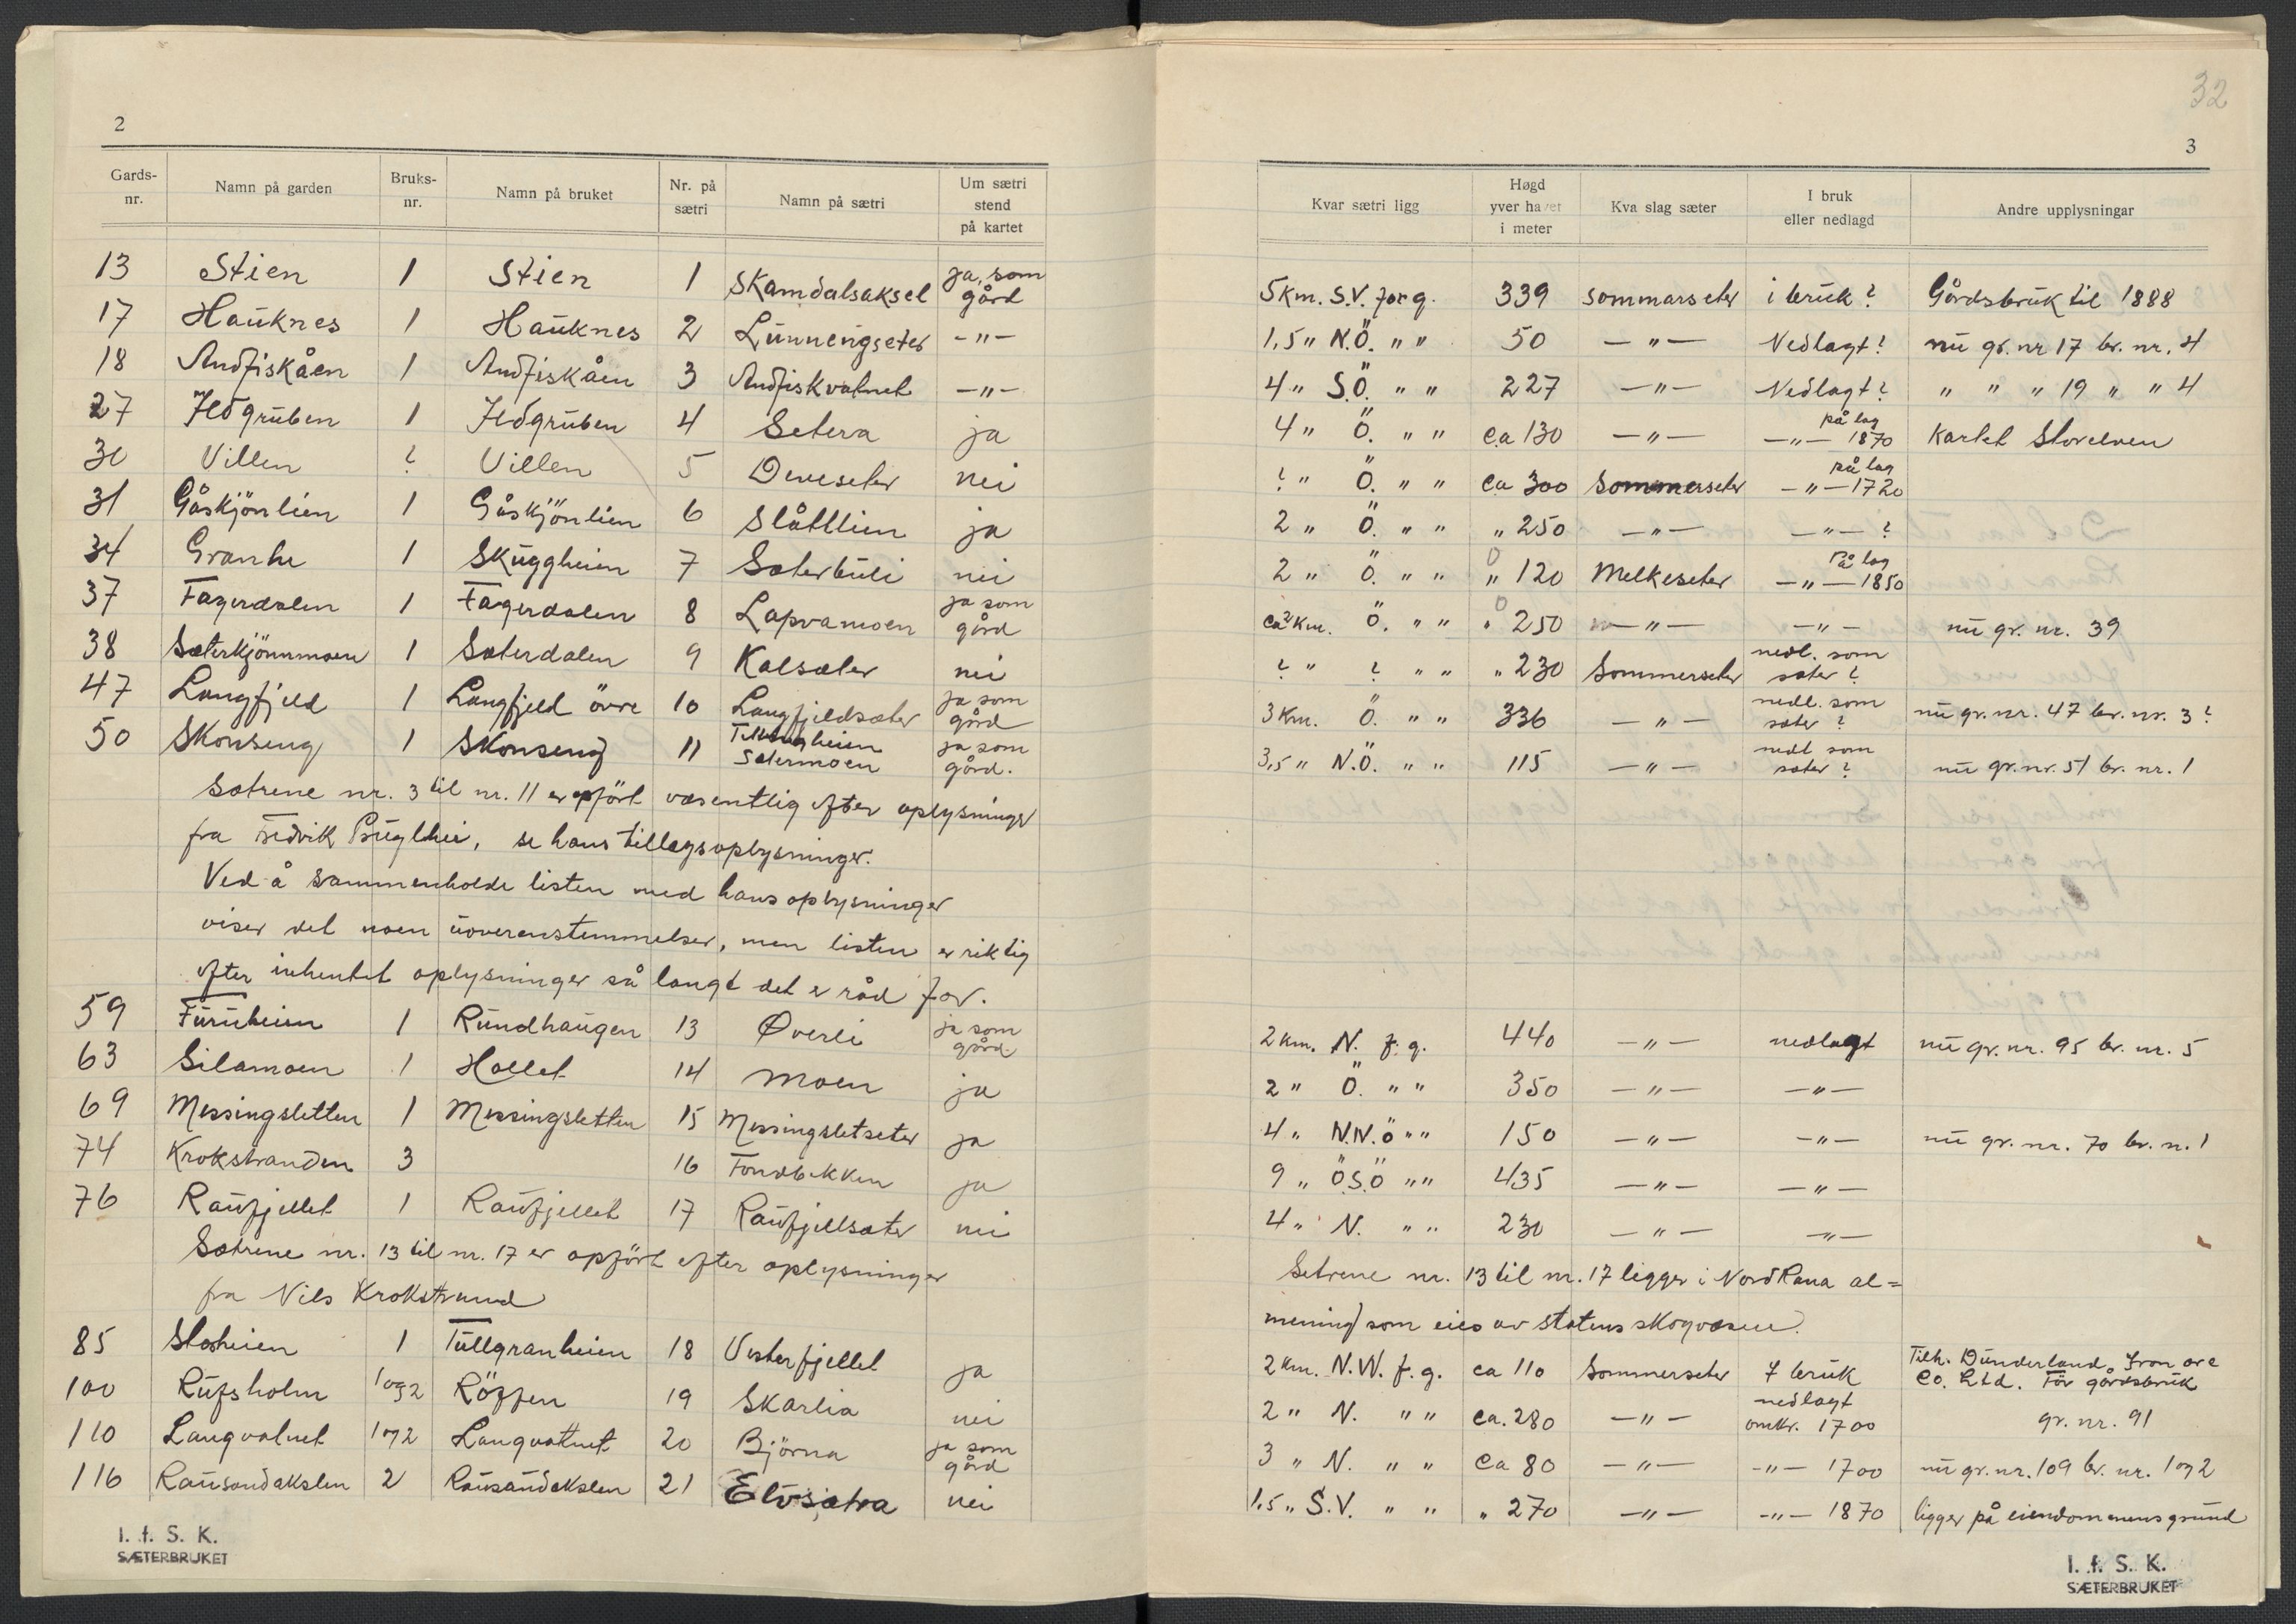 2
Gards-nr. Namn på garden Bruks-nr. Namn på bruket Nr. på sætri Namn på sætri Um sætri stend på kartet
13 Stien 1 Stien 1 Skamdalsaksel ja, som gård
17 Hauknes 1 Hauknes 2 Lunnengseter -"-
18 Andfiskåen 1 Andfiskåen 3 Andfiskvatnet -"-
27 Ildgruben 1 Ildgruben 4 Setera ja
30 Villen ? Villen 5 nei
31 Gåskjönlien 1 Gåskjönlien 6 Slåttlien ja
34 1 Skuggheien 7 Sæterbuli nei
37 Fagerdalen 1 Fagerdalen 8 Lapvamoen ja som gård
38 Sæterkjönnmoen 1 Sæterdalen 9 Kalsæter nei
47 Langfjeld 1 Langfjeld övre 10 Langfjeldsæter ja som gård
50 Skonseng 1 Skonseng 11 Sætermoen ja som gård.
Sætrene nr. 3 til nr. 11 er opfört væsentlig efter oplysninger
fra se hans tillægsoplysninger.
Ved å sammenholde listen med hans oplysninger
viser det noen uoverenstemmelser, men listen er riktig
efter inhentet oplysninger så langt det er råd for.
59 Furuheien 1 Rundhaugen 13 Øverli ja som gård
63 Silamoen 1 Hollet 14 Moen ja
69 Messingsletten 1 Messingsletten 15 Messingsletseter ja
74 Krokstranden 3 16 Fondbekken ja
76 Raufjellet 1 Raufjellet 17 Raufjellsæter nei
Sætrene nr. 13 til nr. 17 er opfört efter oplysninger
fra Nils Krokstrand
85 1 Tullgranheien 18 Vesterfjellet ja
100 Rufsholm 1 og 2 Röffen 19 Skarlia nei
110 Langvatnet 1 og 2 Langvatnet 20 Björna ja som gård
116 Rausandakslen 2 Rausandakslen 21 Elvsætra nei
I. f. S. K.
SÆTERBRUKET
32
3
Kvar sætri ligg Høgd yver havet i meter Kva slag sæter I bruk eller nedlagd Andre upplysningar
5 km. S.V. for g. 339 sommarseter i bruk? Gårdsbruk til 1888
1,5 " N.Ö. " " 50 -"- Nedlagt? nu gr. nr 17 br. nr. 4
4 " S.Ö. " " 227 -"- Nedlagt? " " " 19 " " 4
4 " Ö. " " ca 130 -"- -"- på lag 1870 kartet Storelven
? " Ö. " " ca 300 Sommerseter -"- på lag 1720
2 " Ö. " " " 250 -"- -"- ?
2 " Ö. " " " 120 Melkeseter -"- På lag 1850
ca 2 km. Ö. " " " 250 -"- -"- nu gr. nr. 39
? " ? " " " 230 Sommerseter nedl. som sæter?
3 km. Ö. " " 336 -"- nedl. som sæter? nu gr. nr. 47 br. nr. 3?
3,5 " N.Ö. " " 115 -"- nedl som sæter? nu gr. nr. 51 br. nr. 1
2 km. N. f. g. 440 -"- nedlagt nu gr. nr. 95 br. nr. 5
2 " Ö. " " 350 -"- -"-
4 " N.N.Ö " " 150 -"- -"- nu gr. nr. 70 br. n. 1
9 " Ö.S.Ö " " 435 -"- -"-
4 " N. " " 230 -"- -"-
Setrene nr. 13 til nr. 17 ligger i Nord Rana al=
mening som eies av statens skogvæsen.
2 km. N.W. f. g. ca 110 Sommerseter I bruk Tilh. Dunderland Iron ore Co. Ltd. För gårdsbruk
2 " N. " " ca. 280 -"- nedlagt omkr. 1700 gr. nr. 91
3 " N. " " ca 80 -"- -"- 1700 nu gr. nr. 109 br. nr. 1 og 2
1,5 " S.V. " " " 270 -"- -"- 1870 ligger på eiendommens grund
I. f. S. K.
SÆTERBRUKET